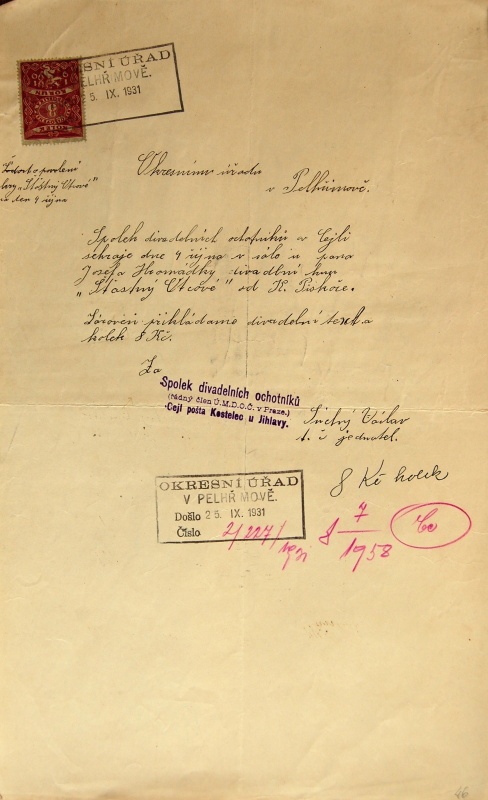 OKRESNÍ ÚŘAD
V PELHŘIMOVĚ.
25. IX. 1931
8
Žádost o povolení
hry „Šťastný Vlcové"
na den 4 října
Okresnímu úřadu
v Pelhřimově.
Spolek divadelních ochotníků v Cejli
sehraje dne 4 října v sále u pana
Josefa Hromádky divadelní hru
„Šťastný Vlcové" od K. Piskoře.
Zároveň přikládáme divadelní text a
kolek 8 Kč.
Za
Spolek divadelních ochotníků
(řádný člen Ú.M.D.O.Č. v Praze.)
Cejl pošta Kostelec u Jihlavy.
Suchý Václav
t. č. jednatel.
8 Kč kolek
OKRESNÍ ÚŘAD
V PELHŘIMOVĚ.
Došlo 25. IX. 1931
Číslo 2/227/1931
8 7
1958
46